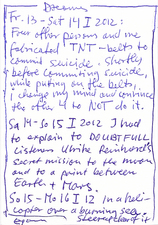 Dreams
Fr. 13 - Sat 14 I 2012:
Four other persons and me
fabricated TNT-belts to
commit suicide. Shortly
before committing suicide,
while putting on the belts,
I change my mind and convince
the other 4 to NOT do it.
Sa 14 - So 15 I 2012 I had
to explain to DOUBTFULL
listener Ulrike Reinhard's
secret mission to the moon
and to a point between
Earth + Mars.
So 15 - Mo 16 I 12 In a heli-
copter over a burning sea.